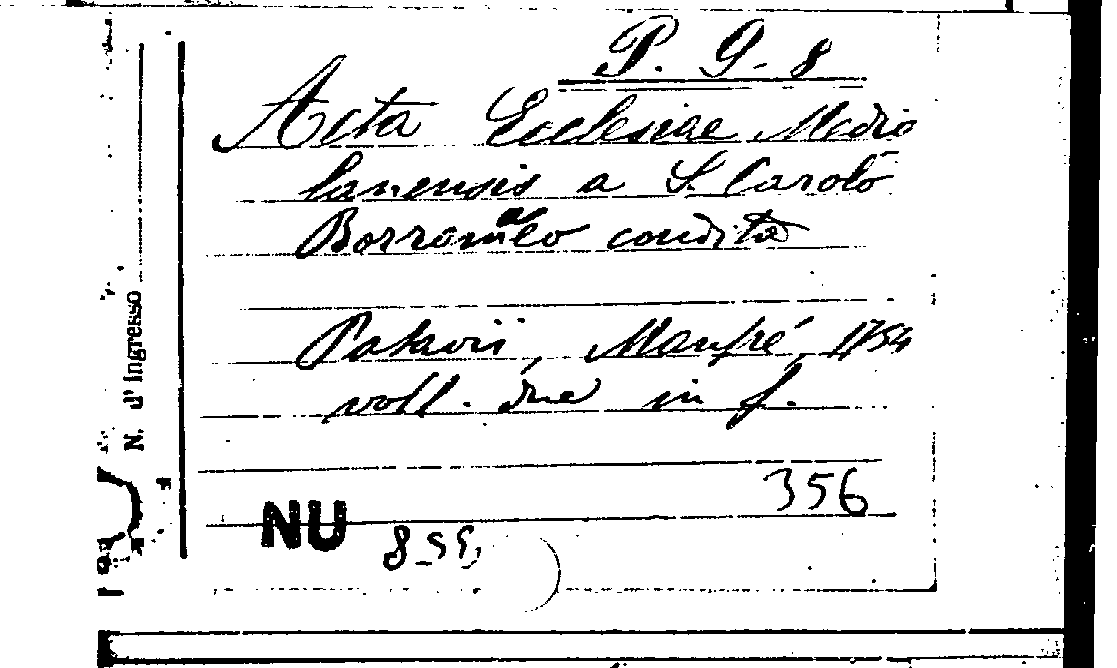 P. 9. 8
Acta Ecclesiae Medio
lanensis a S. Carolo
Borromaeo condita
Patavii, Manfré, 1754
voll. due in f.
356
NU
N. d'Ingresso